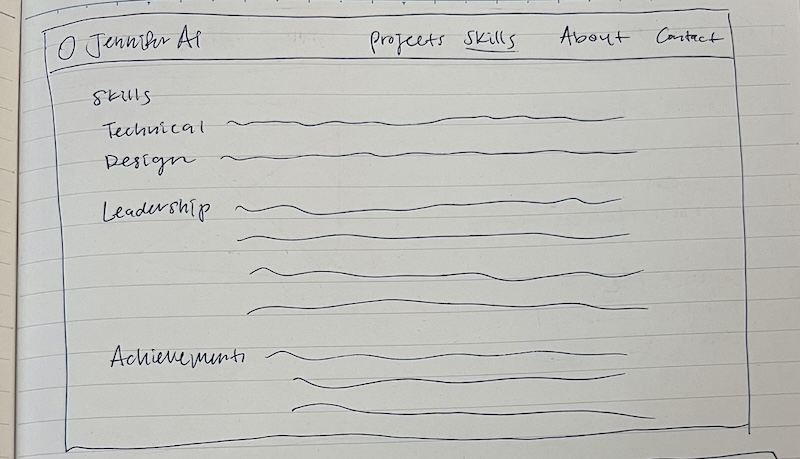 Jennifer AI Projects Skills About Contact
Skills
Technical
Design
Leadership
Achievements